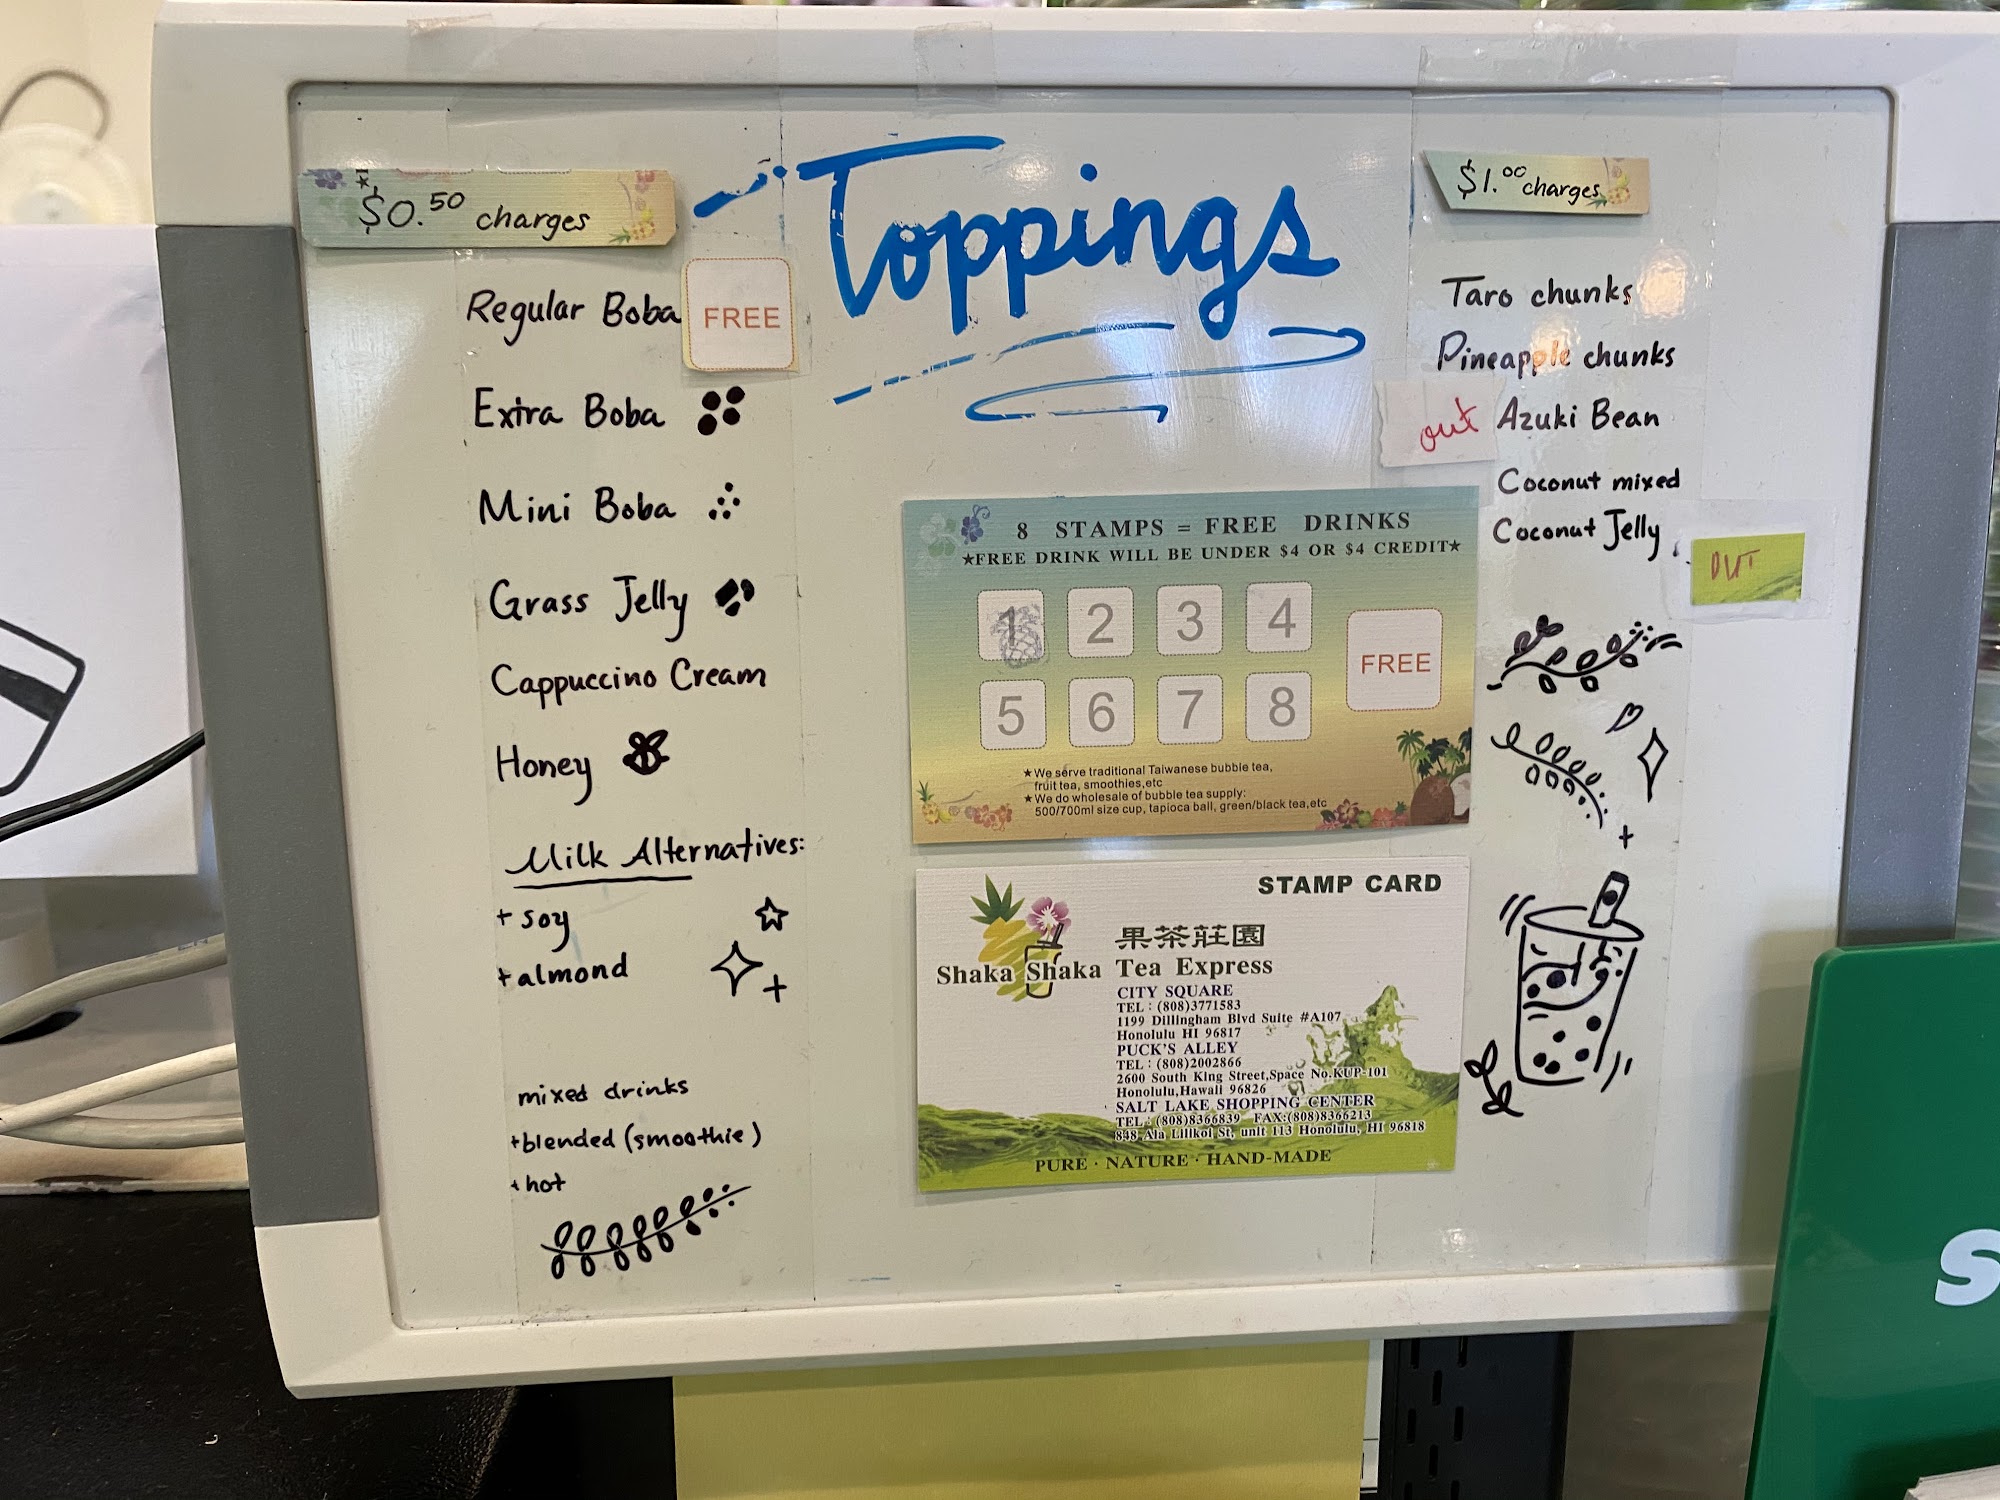 Toppings
$0.50 charges
Regular Boba FREE
Extra Boba
Mini Boba
Grass Jelly
Cappuccino Cream
Honey
Milk Alternatives:
+ soy
+ almond
mixed drinks
+blended (smoothie)
+hot
8 STAMPS = FREE DRINKS
★FREE DRINK WILL BE UNDER $4 OR $4 CREDIT★
1 2 3 4
FREE
5 6 7 8
★We serve traditional Taiwanese bubble tea,
fruit tea, smoothies,etc
★We do wholesale of bubble tea supply:
500/700ml size cup, tapioca ball, green/black tea,etc
STAMP CARD
果茶莊園
Shaka Shaka Tea Express
CITY SQUARE
TEL : (808)3771583
1199 Dillingham Blvd Suite #A107
Honolulu HI 96817
PUCK'S ALLEY
TEL : (808)2002866
2600 South King Street,Space No.KUP-101
Honolulu,Hawaii 96826
SALT LAKE SHOPPING CENTER
TEL : (808)8366839 FAX:(808)8366213
848 Ala Lilikoi St, unit 113 Honolulu, HI 96818
PURE · NATURE · HAND-MADE
$1.00 charges
Taro chunks
Pineapple chunks
out Azuki Bean
Coconut mixed
Coconut Jelly
OUT
S